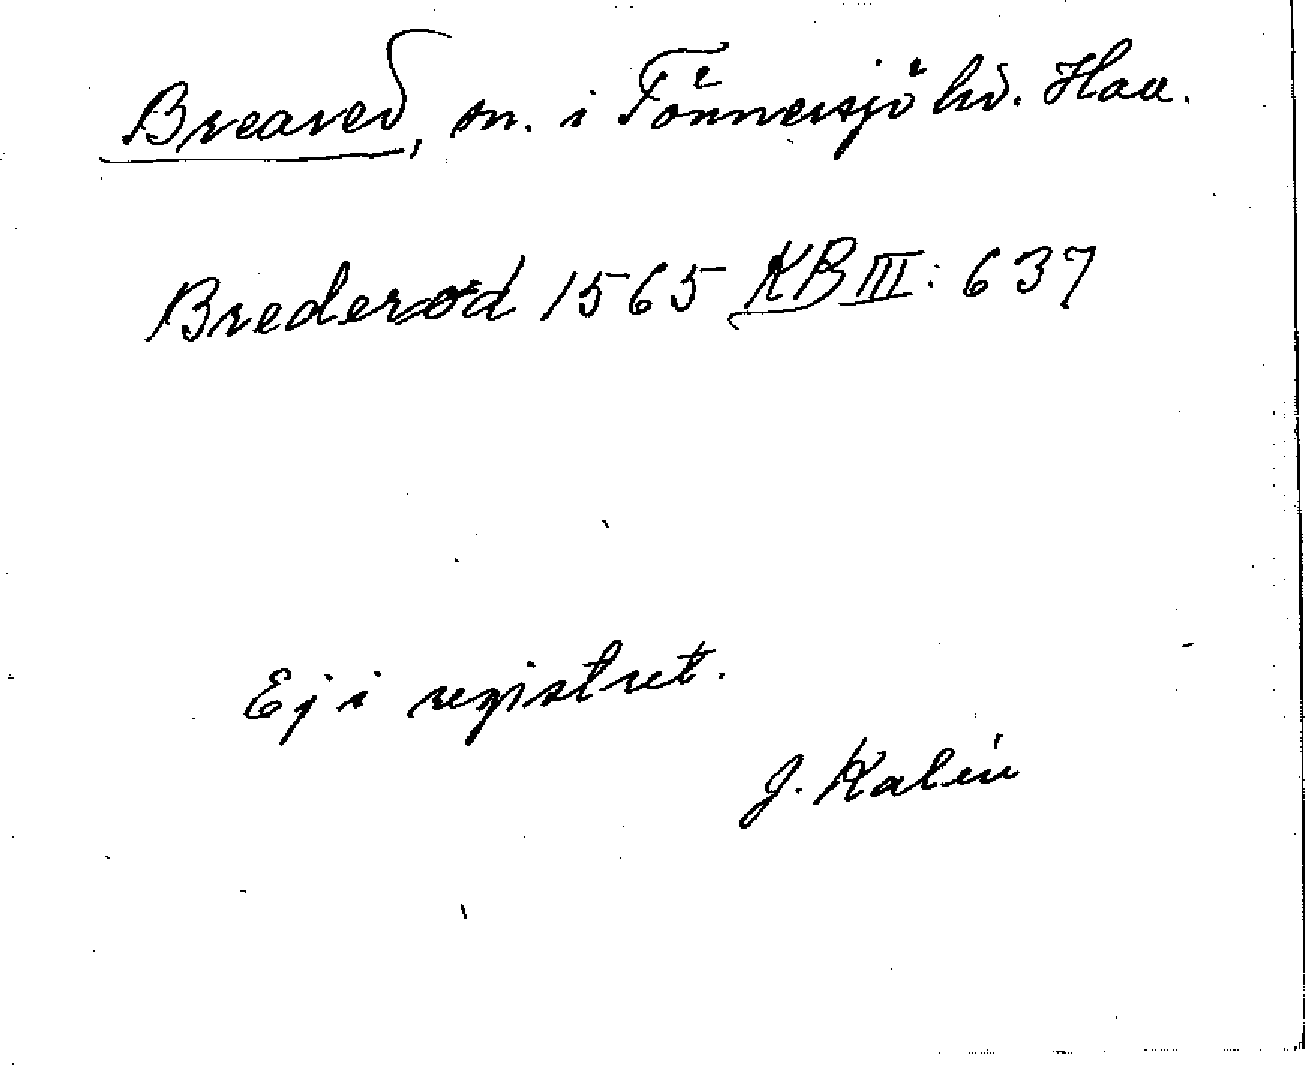 Breared, sn. i Tönnersjö hd. Haa.
Brederød 1565 KB III: 637
Ej i registret.
J. Kalén